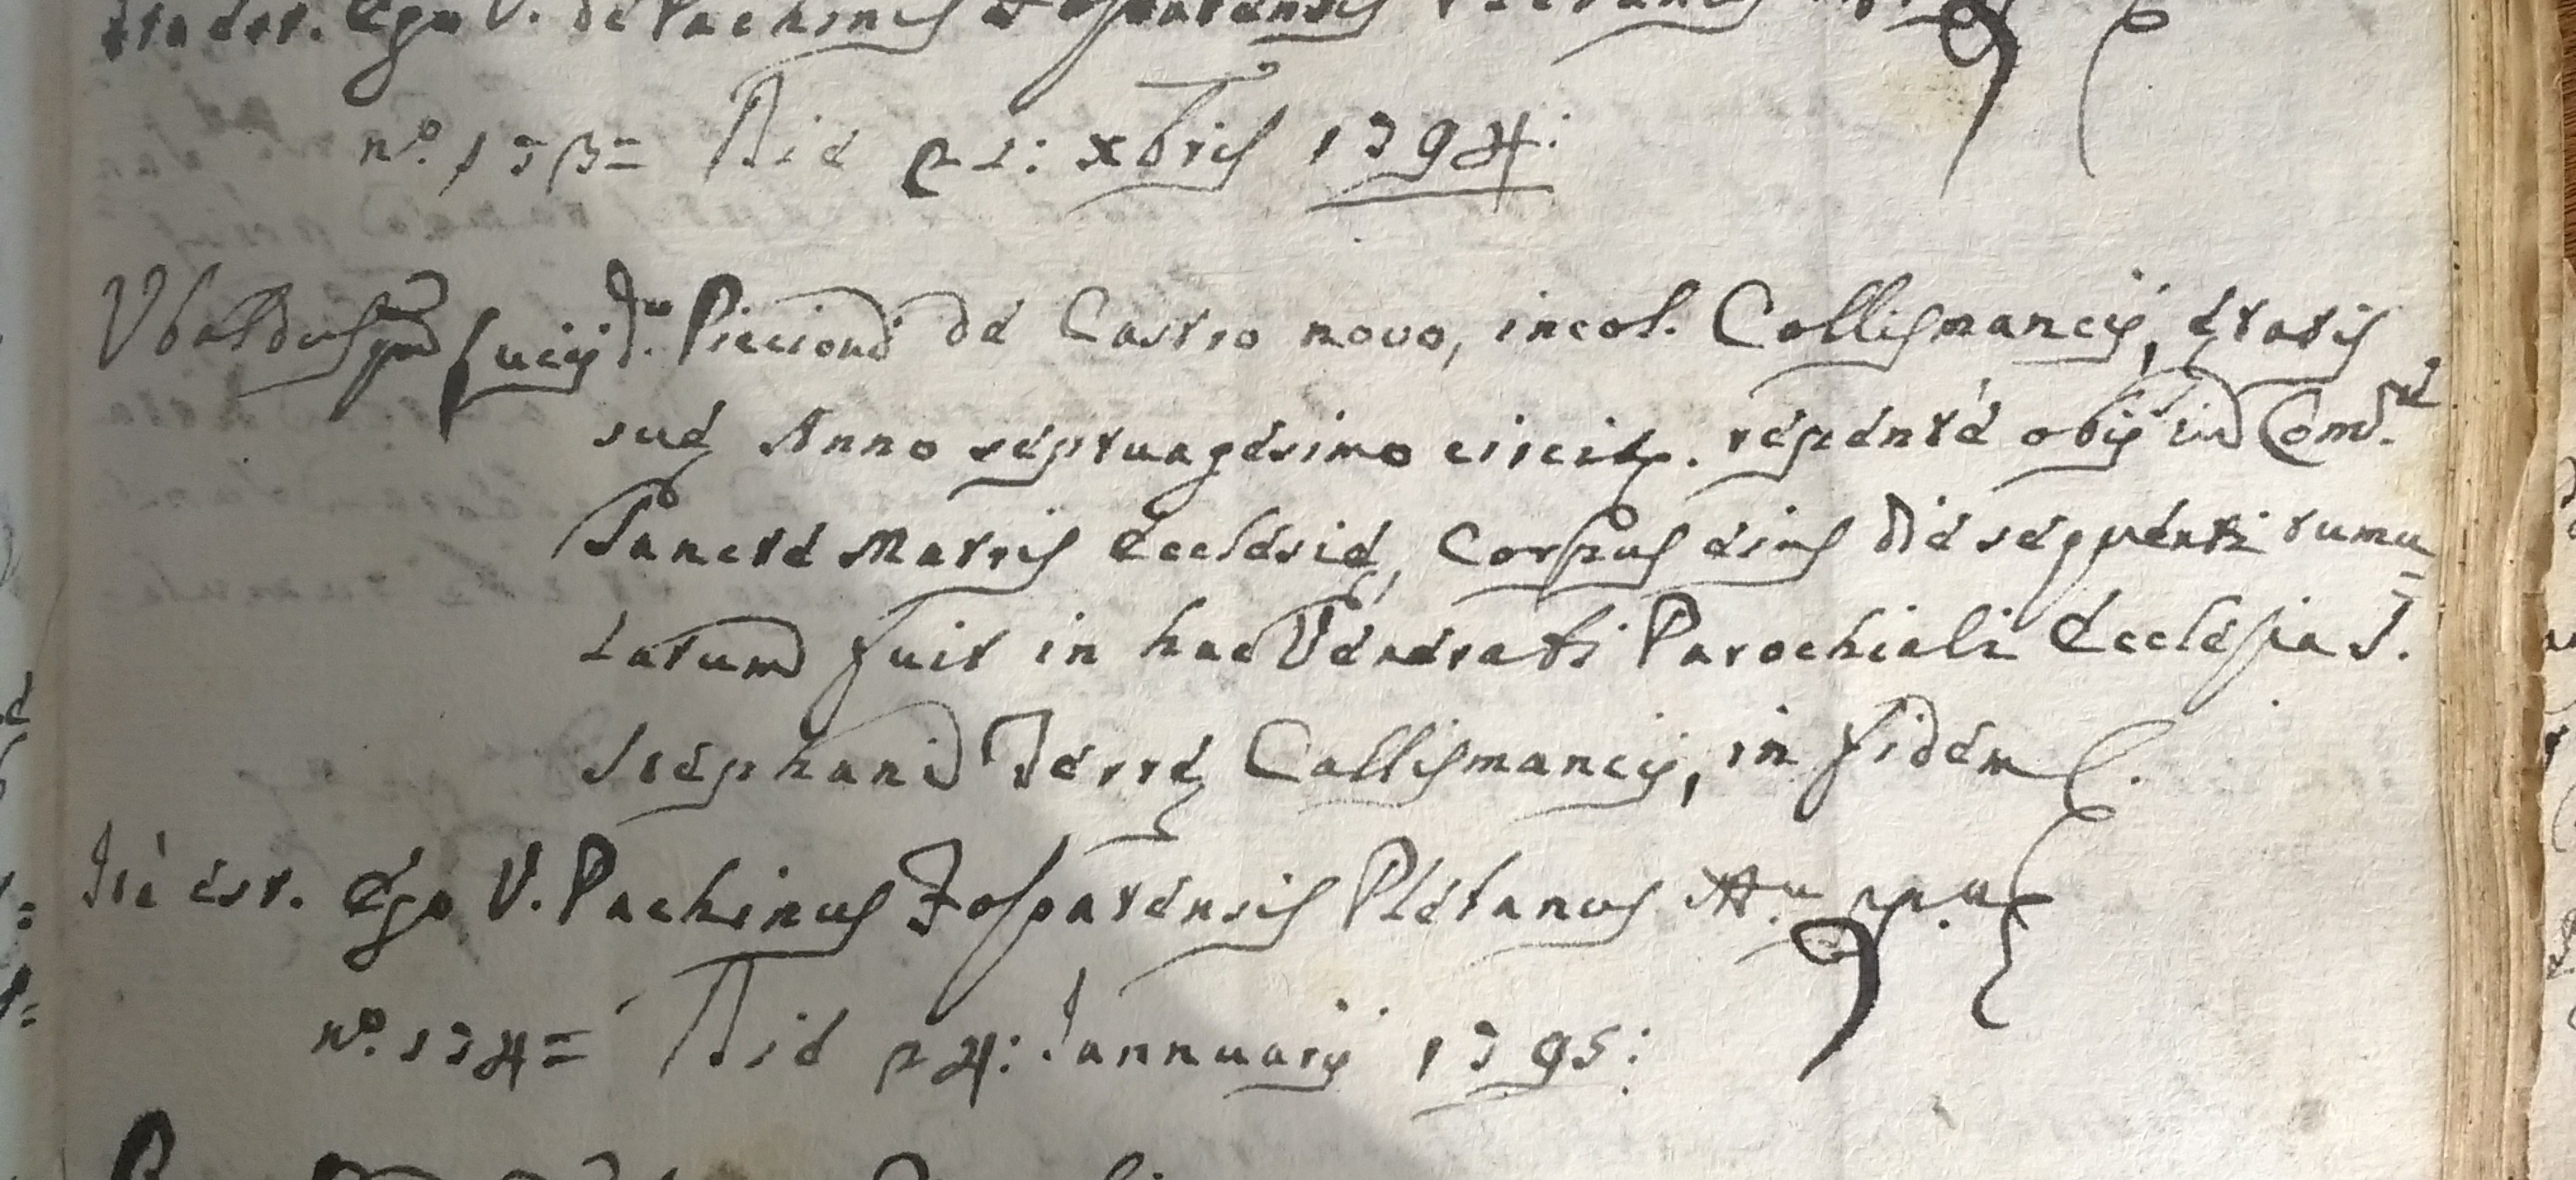 Ita est. Ego V. de Pachinis Fosparensis
n.º 173= Die 21: xbris 1794:
Ubaldus qm Lucij d.m Piccioni de Castro novo, incol. Collismancij, ętatis
suę Anno septuagesimo circit. repentè obijt in Com.ne
Sanctę Matris Ecclesię, corpus eius die sequenti tumu=
latum fuit in hac Venerabi Parochiali Ecclesia S.
Stephani Terrę Collismancij, in fidem
Itа est. Ego V. Pachinus Fosparensis Plebanus
n.º 174= Die 24: Jannuarij 1795: